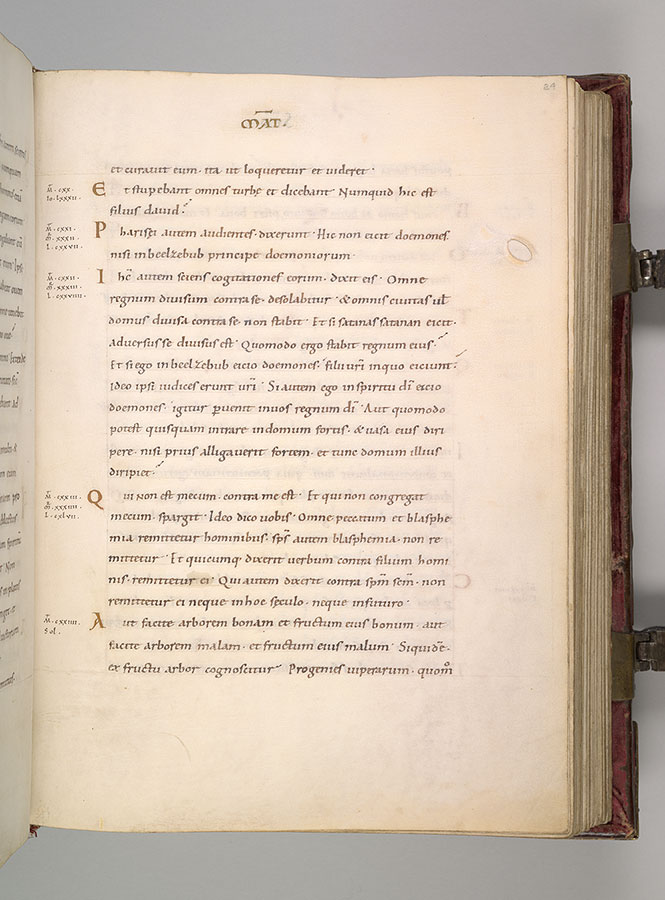 24
MAT·
et curavit eum · ita ut loqueretur et videret ·
M̄ · cxx ·
Io · lxxxii ·
E t stupebant omnes turbe et dicebant Numquid hic est
filius david
M̄ · cxxi ·
m̄ · xxxii
l · cxxvii ·
P harisei autem audientes · dixerunt · Hic non eicit doemones
nisi in beelzebub principe doemoniorum ·
M̄ · cxxii ·
m̄ · xxxiii ·
l · cxxviiii ·
I hc̄ autem sciens cogitationes eorum · dixit eis · Omne
regnum divisum contra se · desolabitur · & omnis civitas ul̄
domus divisa contra se · non stabit · Et si satanas satanan eicit ·
adversus se divisus est · Quomodo ergo stabit regnum eius
Et si ego in beelzebub eicio doemones · filii uri in quo eiciunt ·
ideo ipsi iudices erunt ur̄i · Si autem ego in spiritu dī eicio
doemones · igitur pvenit in vos regnum dī · Aut quomodo
potest quisquam intrare in domum fortis · & uasa eius diri
pere · nisi prius alligaverit fortem · et tunc domum illius
diripiet ·
M̄ · cxxiii ·
m̄ · xxxiiii ·
l · cxlvii ·
Q ui non est mecum · contra me est · Et qui non congregat
mecum · spargit · Ideo dico vobis · Omne peccatum et blasphe
mia remittetur hominibus · sps̄ autem blasphemia · non re
mittetur · Et quicumq; dixerit verbum contra filium homi
nis · remittetur ei · Qui autem dixerit contra spm̄ scm̄ · non
remittetur ei neque in hoc sęculo · neque in futuro ·
M̄ · cxxiiii ·
Sol ·
A ut facite arborem bonam et fructum eius bonum · aut
facite arborem malam · et fructum eius malum · Siquidē ·
ex fructu arbor cognoscitur · Progenies viperarum · quom̊